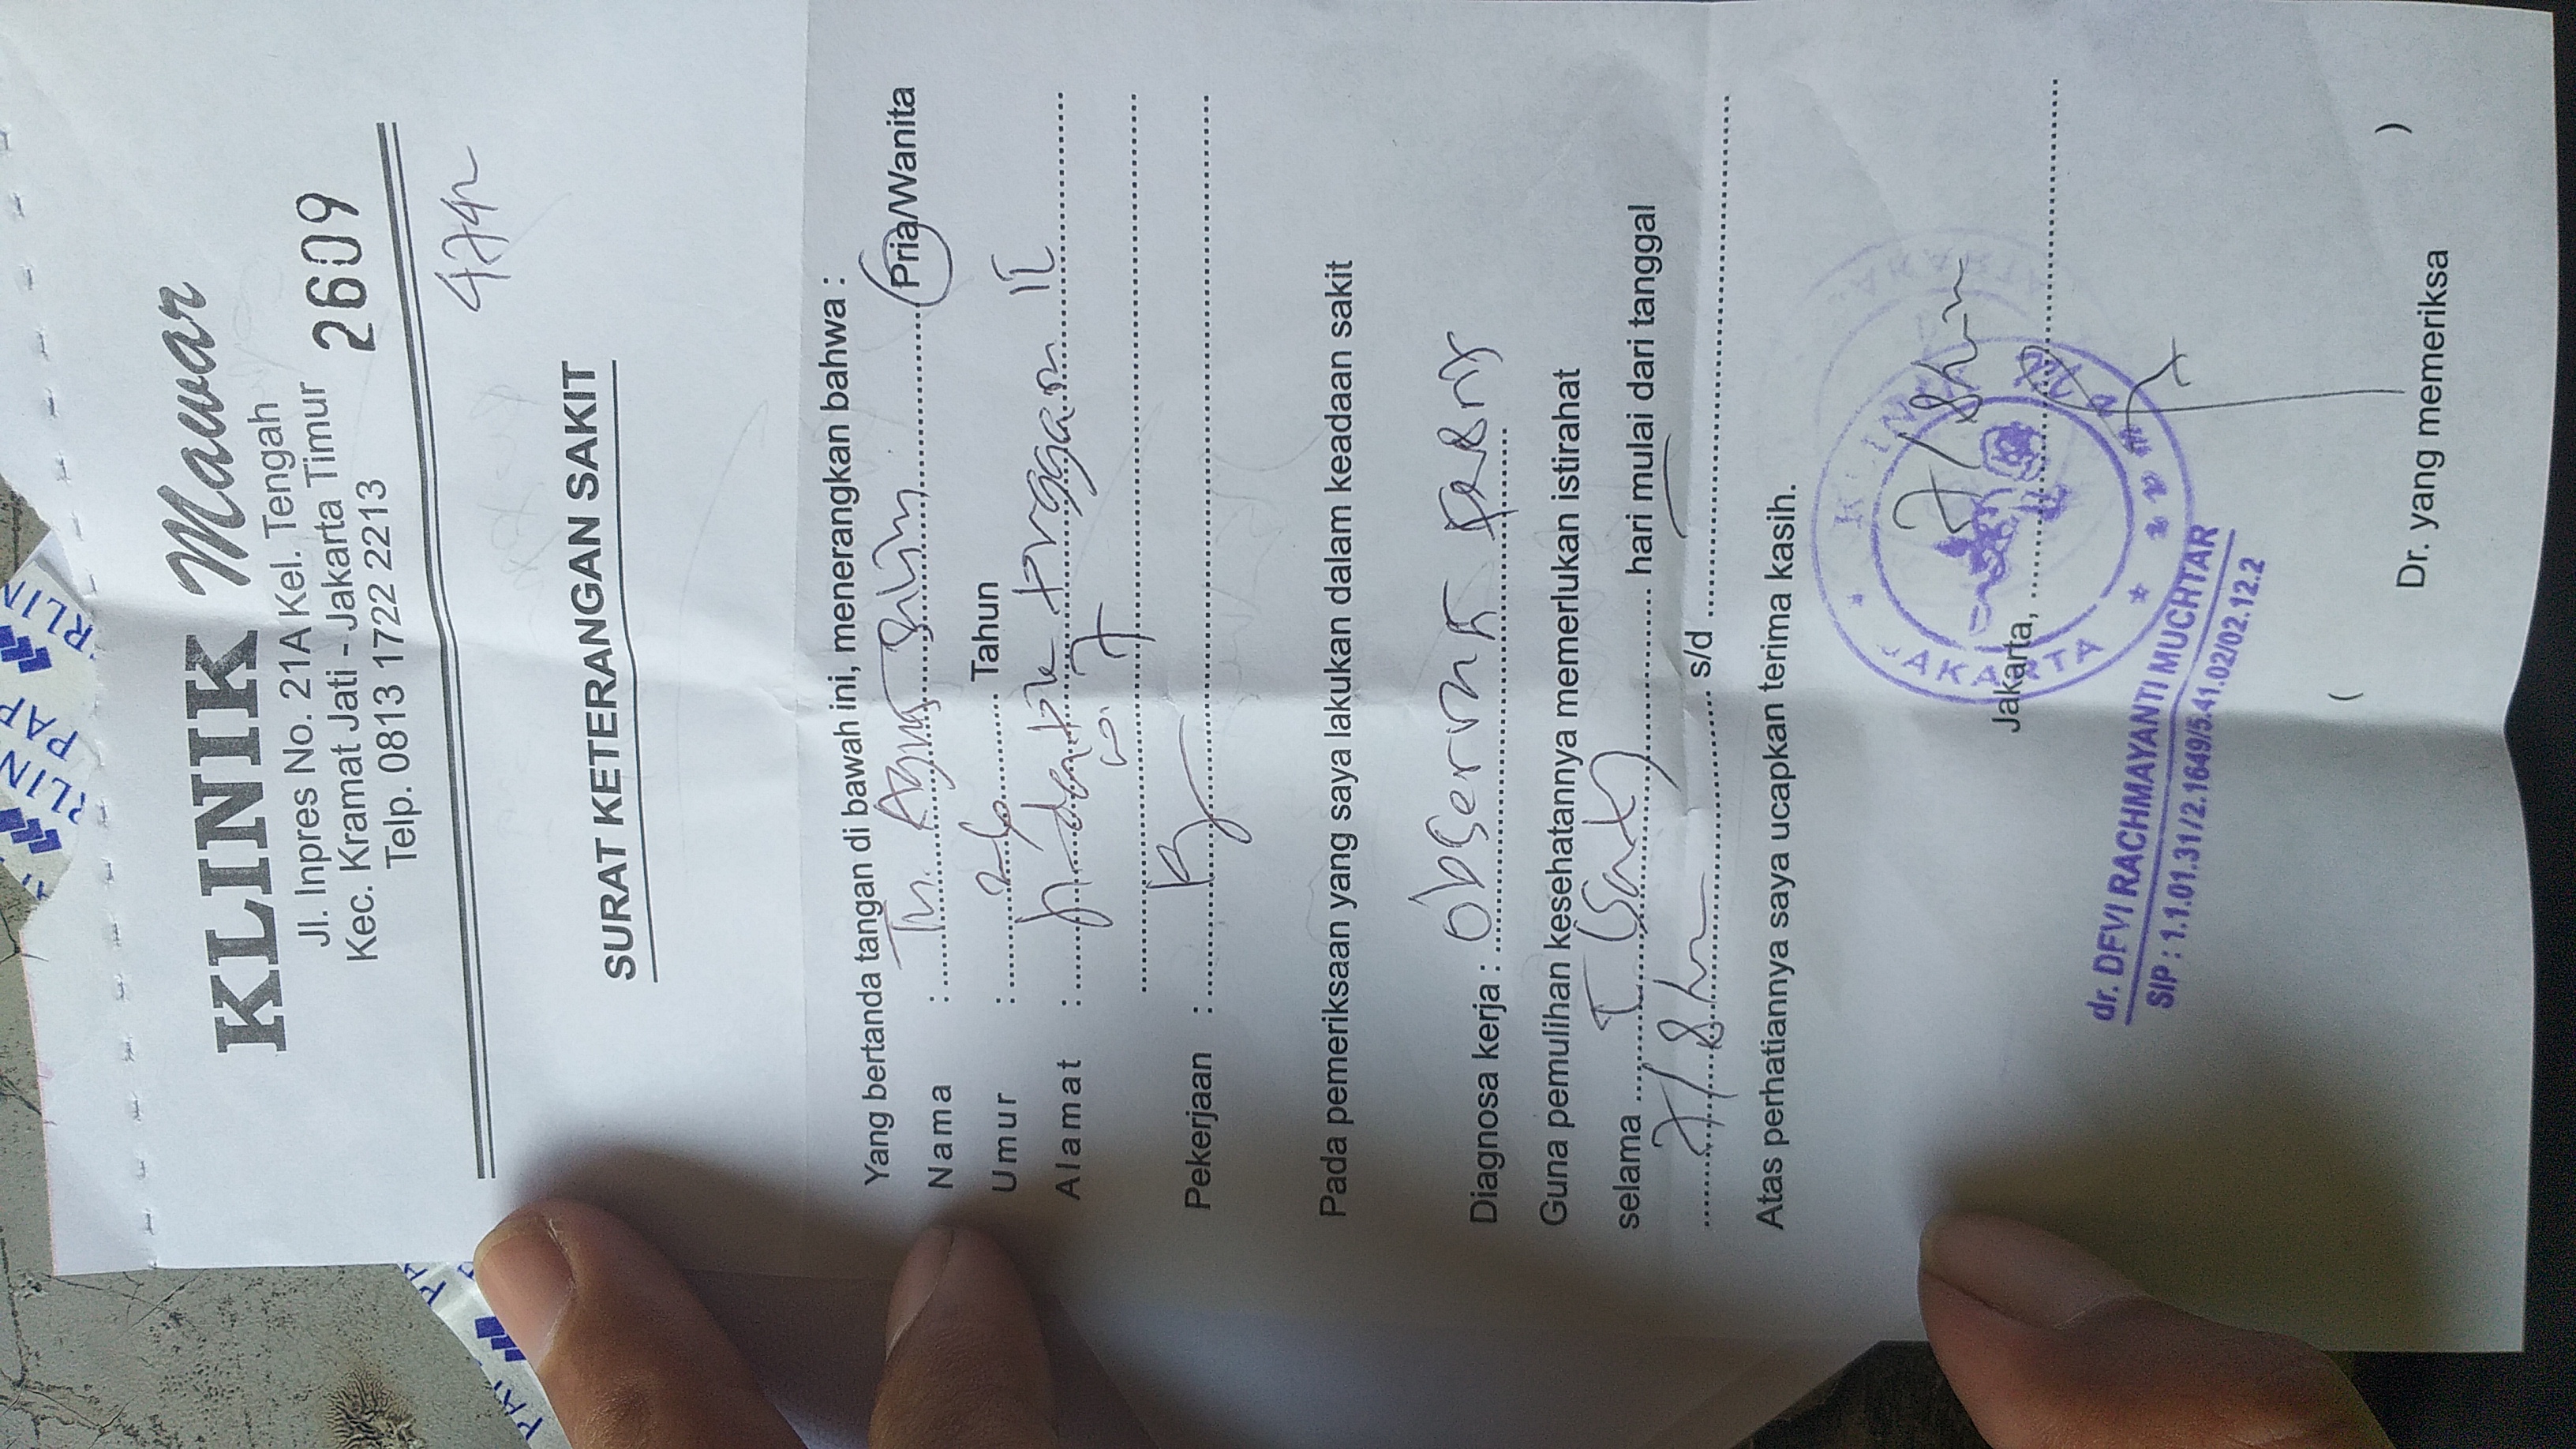 KLINIK Mawar
Jl. Inpres No. 21A Kel. Tengah
Kec. Kramat Jati - Jakarta Timur
Telp. 0813 1722 2213
2609
SURAT KETERANGAN SAKIT
Yang bertanda tangan di bawah ini, menerangkan bahwa :
Nama : Tn. Agus Salim Pria/Wanita
Umur : 26 Tahun
Alamat : II
7
Pekerjaan :
Pada pemeriksaan yang saya lakukan dalam keadaan sakit
Diagnosa kerja : observasi
Guna pemulihan kesehatannya memerlukan istirahat
selama I (Satu) hari mulai dari tanggal
7/8 s/d
Atas perhatiannya saya ucapkan terima kasih.
7/8
Jakarta,
KLINIK Mawar
JAKARTA
dr. DEVI RACHMAYANTI MUCHTAR
SIP : 1.1.01.31/2.1649/5.41.02/02.12.2
( )
Dr. yang memeriksa